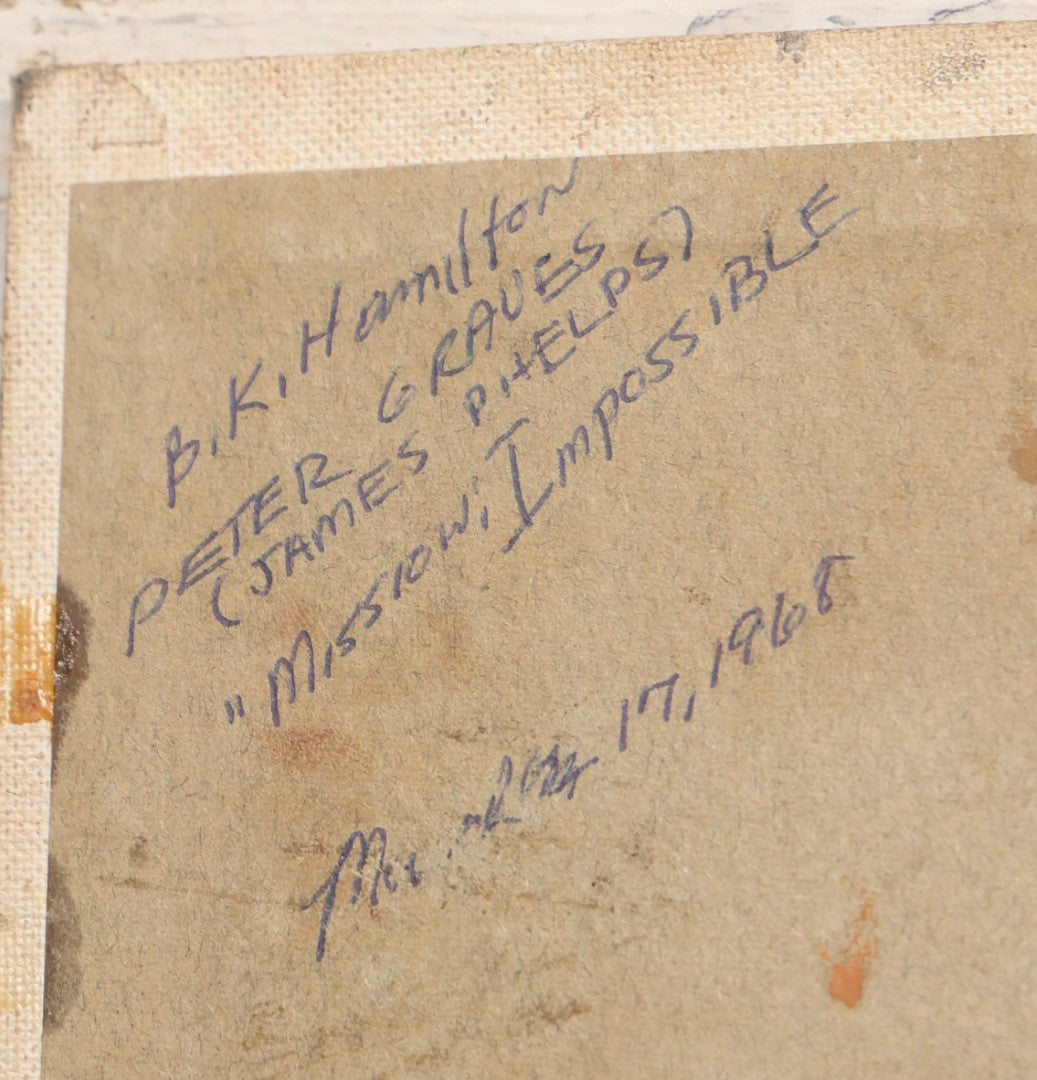 B.K. Hamilton
PETER GRAVES
(JAMES PHELPS)
"Mission: Impossible
17, 1968